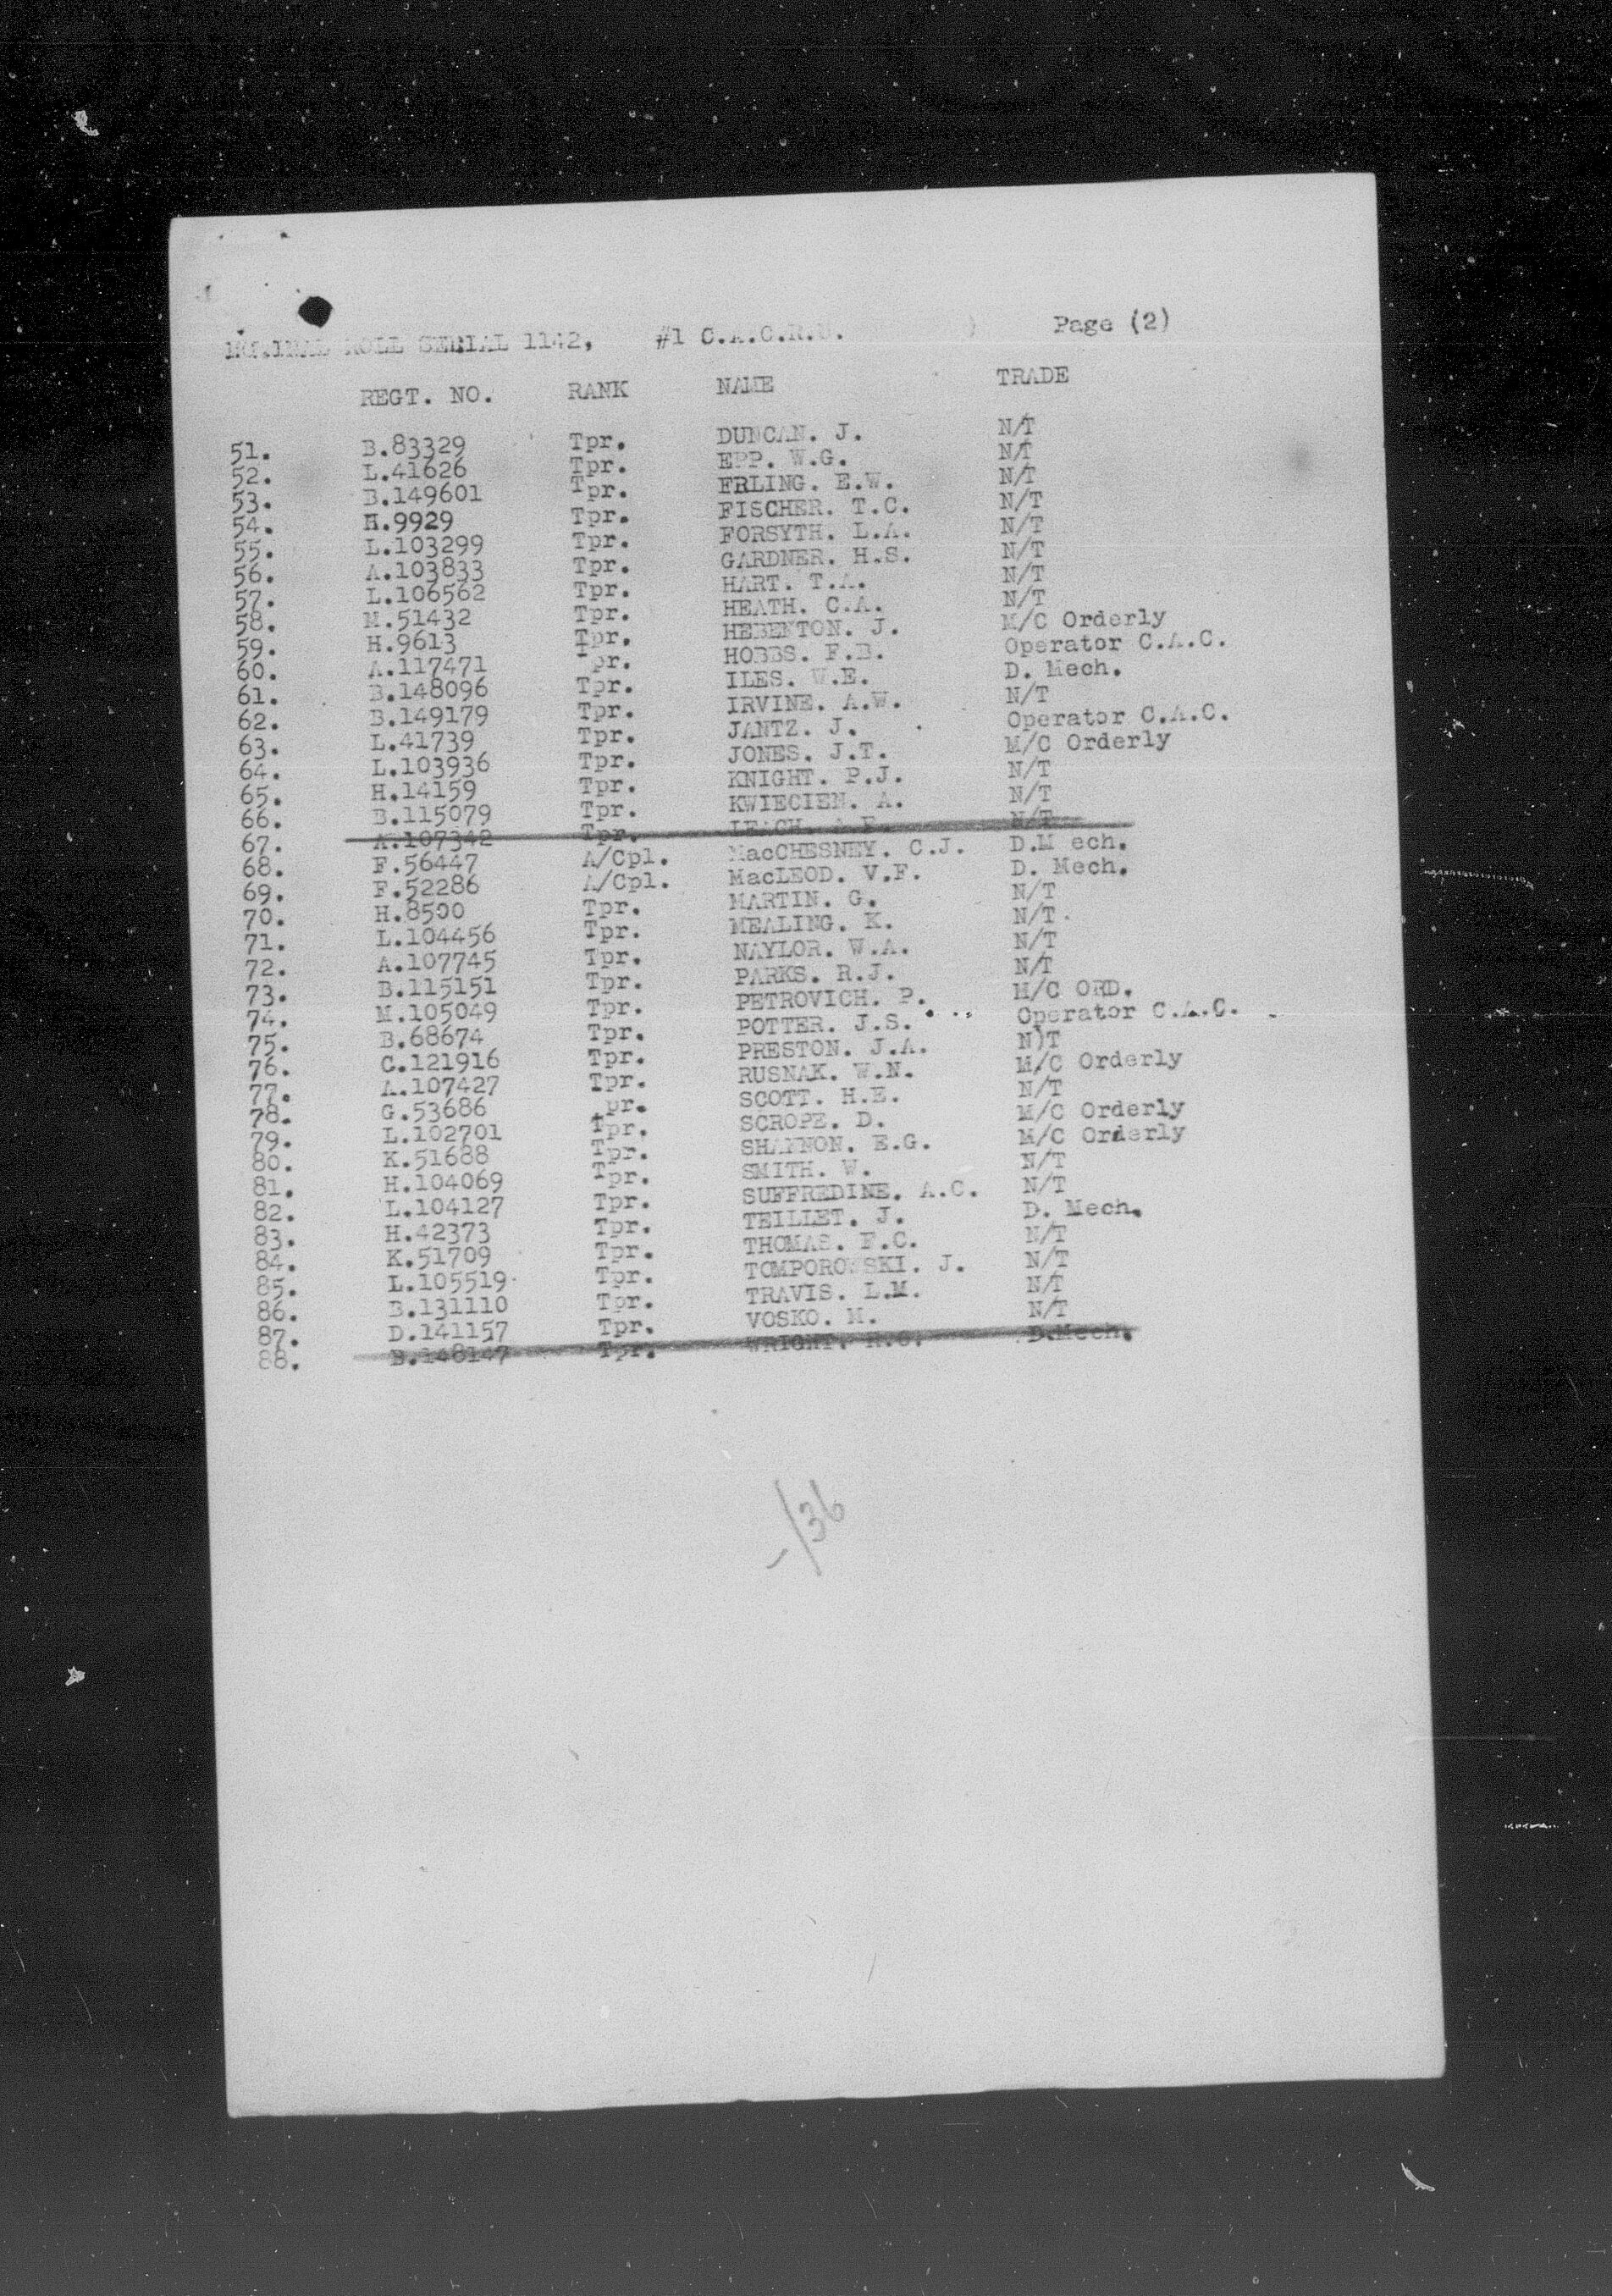 NOMINAL ROLL SERIAL 1142, #1 C.A.C.R.U. Page (2)
REGT. NO. RANK NAME TRADE
51. B.83329 Tpr. DUNCAN. J. N/T
52. L.41626 Tpr. EPP. W.G. N/T
53. B.149601 Tpr. ERLING. E.W. N/T
54. H.9929 Tpr. FISCHER. T.C. N/T
55. L.103299 Tpr. FORSYTH. L.A. N/T
56. A.103833 Tpr. GARDNER. H.S. N/T
57. L.106562 Tpr. HART. T.A. N/T
58. M.51432 Tpr. HEATH. C.A. N/T
59. H.9613 Tpr. HEBENTON. J. M/C Orderly
60. A.117471 Tpr. HOBBS. F.B. Operator C.A.C.
61. B.148096 Tpr. ILES. W.E. D. Mech.
62. B.149179 Tpr. IRVINE. A.W. N/T
63. L.41739 Tpr. JANTZ. J. Operator C.A.C.
64. L.103936 Tpr. JONES. J.T. M/C Orderly
65. H.14159 Tpr. KNIGHT. P.J. N/T
66. B.115079 Tpr. KWIECIEN. A. N/T
67. A.107342 Tpr. LEACH. A.F. N/T
68. F.56447 A/Cpl. MacCHESNEY. C.J. D.M ech.
69. F.52286 A/Cpl. MacLEOD. V.F. D. Mech.
70. H.8500 Tpr. MARTIN. G. N/T
71. L.104456 Tpr. MEALING. K. N/T.
72. A.107745 Tpr. NAYLOR. W.A. N/T
73. B.115151 Tpr. PARKS. R.J. N/T
74. M.105049 Tpr. PETROVICH. P. M/C ORD.
75. B.68674 Tpr. POTTER. J.S. Operator C.A.C.
76. C.121916 Tpr. PRESTON. J.A. N)T
77. A.107427 Tpr. RUSNAK. W.N. M/C Orderly
78. G.53686 Tpr. SCOTT. H.E. N/T
79. L.102701 Tpr. SCROPE. D. M/C Orderly
80. K.51688 Tpr. SHANNON. E.G. M/C Orderly
81. H.104069 Tpr. SMITH. W. N/T
82. L.104127 Tpr. SUFFREDINE. A.C. N/T
83. H.42373 Tpr. TEILLET. J. D. Mech.
84. K.51709 Tpr. THOMAS. F.C. N/T
85. L.105519 Tpr. TOMPOROWSKI. J. N/T
86. B.131110 Tpr. TRAVIS. L.M. N/T
87. D.141157 Tpr. VOSKO. M. N/T
88. B.148147 Tpr. WRIGHT. R.C. D.Mech.
-/36